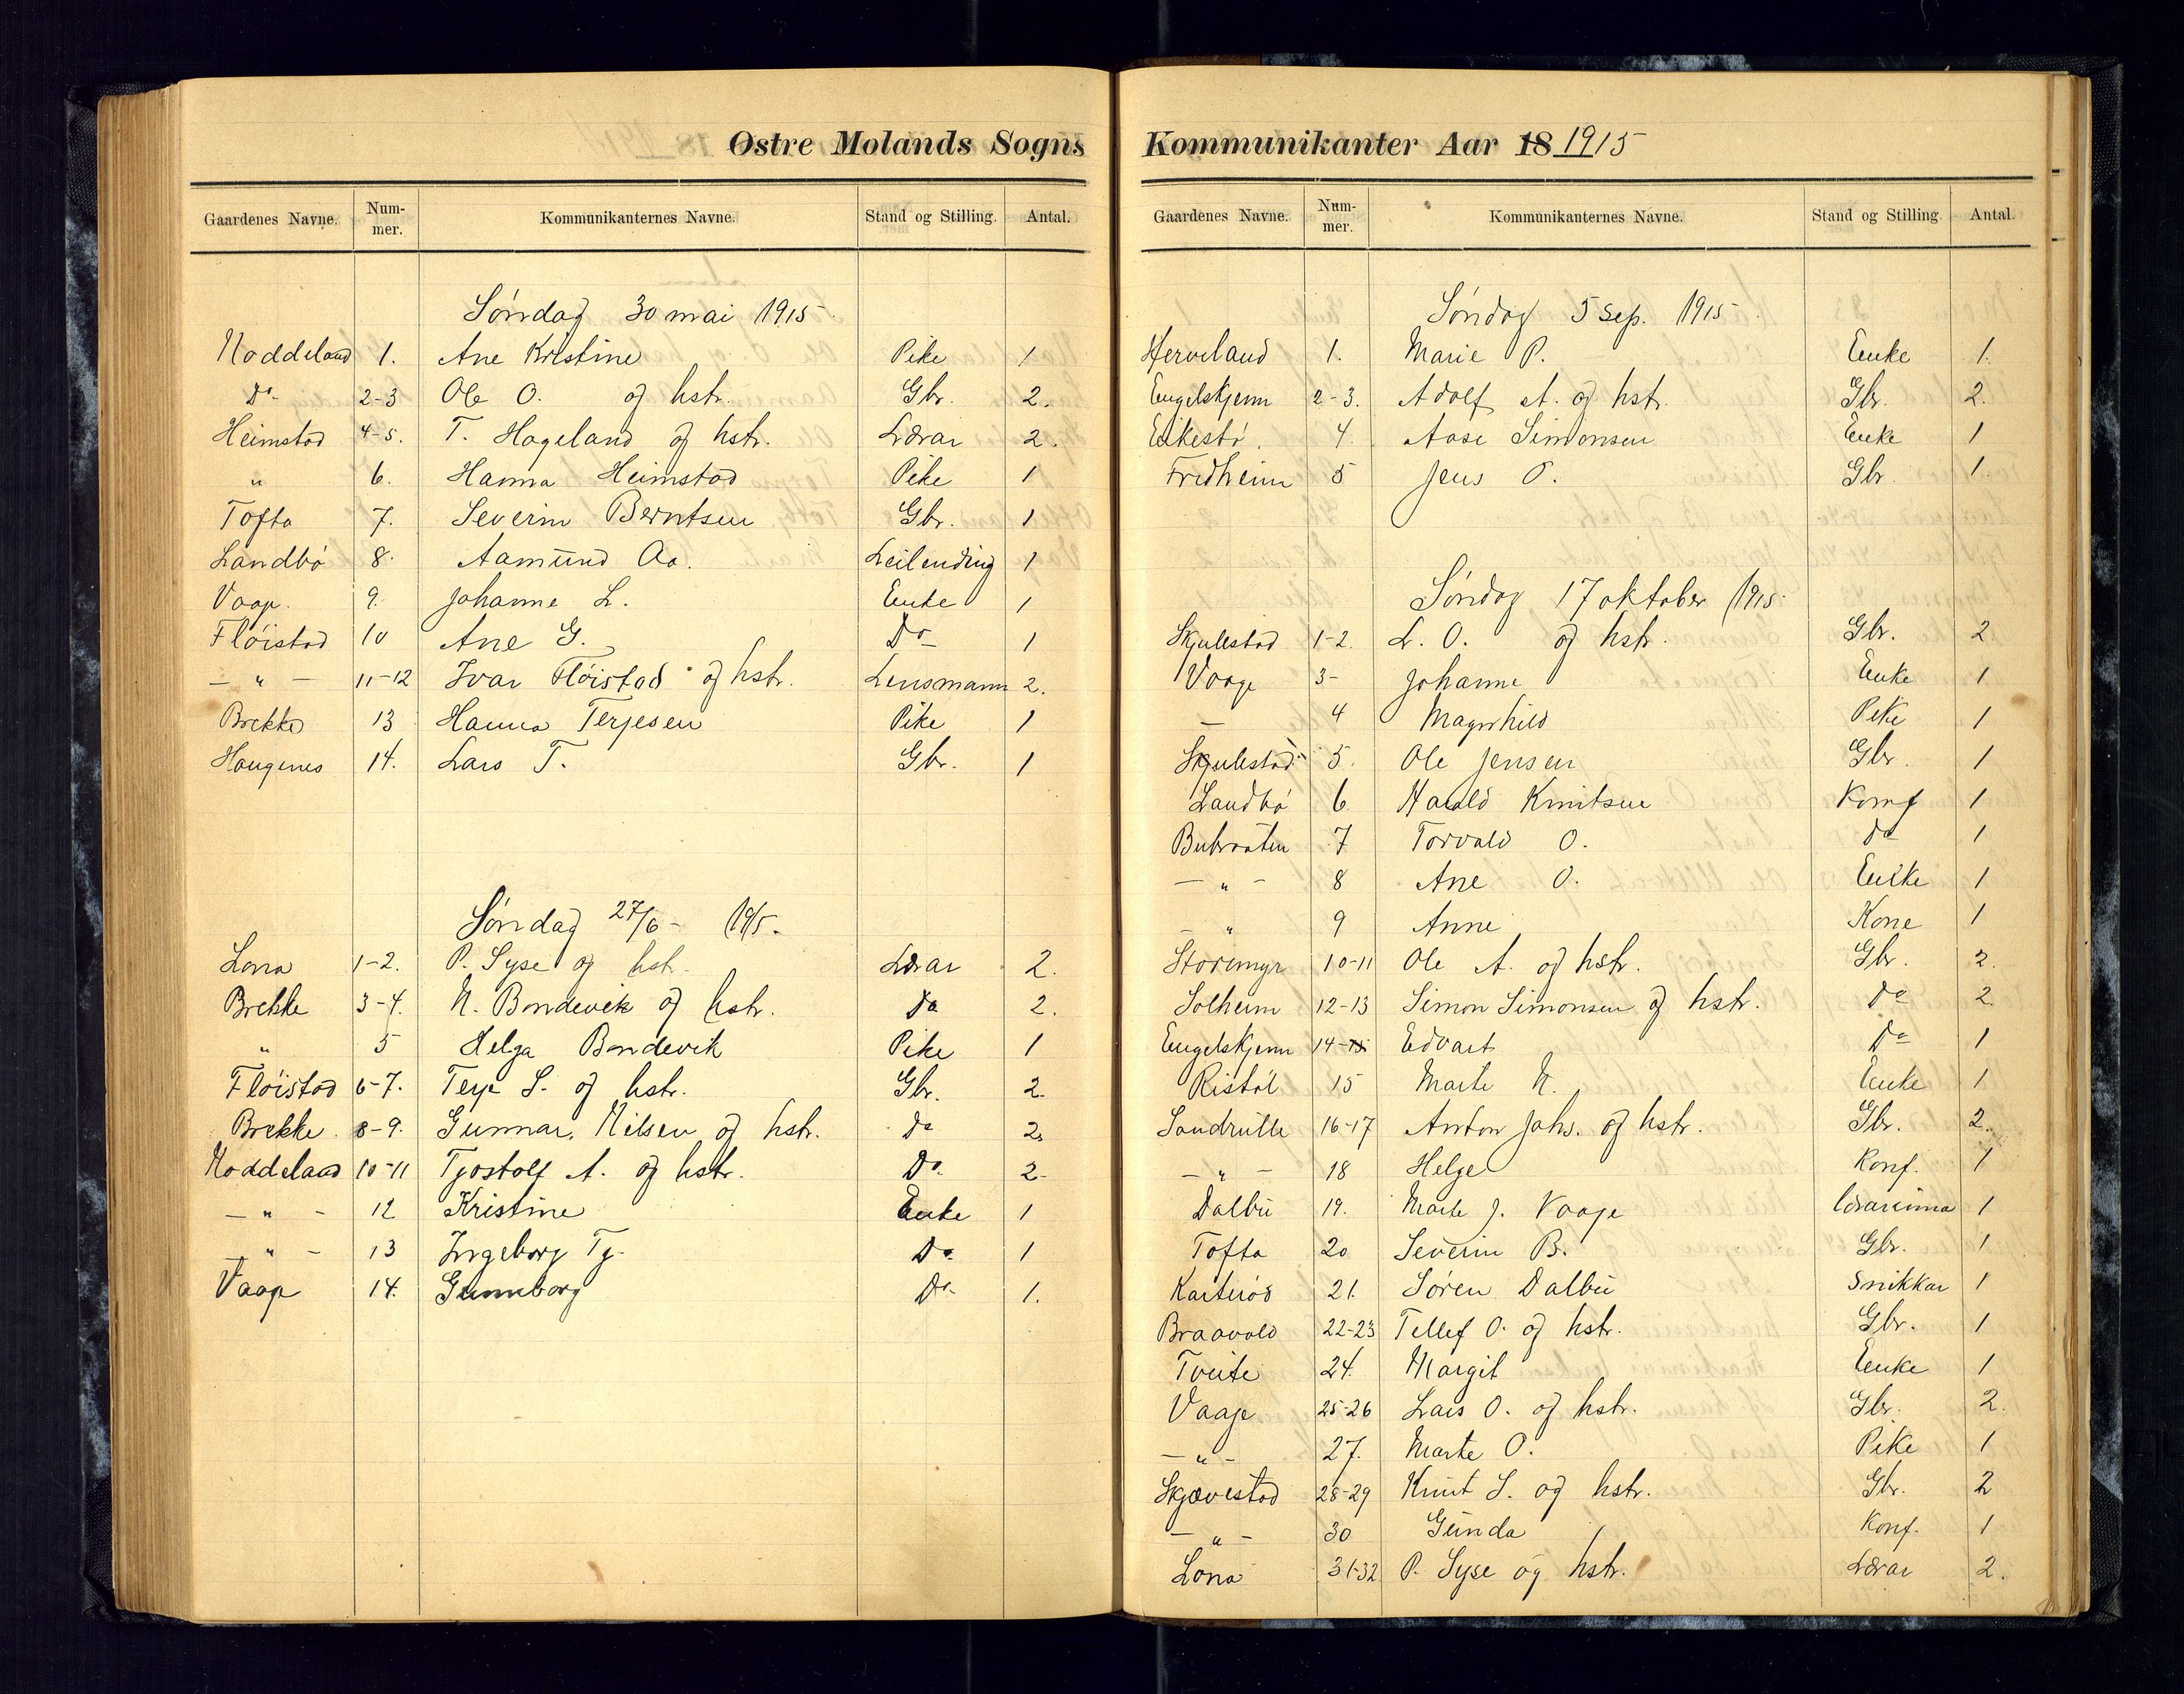 Østre Molands Sogns
Gaardenes Navne. Num-mer. Kommunikanternes Navne. Stand og Stilling. Antal.
Søndag 30 mai 1915
Noddeland 1. Ane Kristine Pike 1
Do 2-3 Ole O. og hstr. Gbr. 2.
Heimstad 4-5. T. Hageland og hstr. Lærar 2.
" 6. Hanna Heimstad Pike 1
Tofta 7. Severin Berntsen Gbr. 1
Landbö 8. Aamund Aa. Leilending 1
Vaage 9. Johanne L. Enke 1
Flöistad 10 Ane G. Do 1
- " - 11-12 Ivar Flöistad og hstr. Lensmann 2.
Brekke 13 Hanna Terjesen Pike 1
Haugenes 14. Lars T. Gbr. 1
Søndag 27/6 - 1915.
Lona 1-2. P. Syse og hstr. Lærar 2.
Brekke 3-4. N. Bondevik og hstr. Do 2.
" 5 Helga Bondevik Pike 1
Flöistad 6-7. Terje S. og hstr. Gbr. 2
Brekke 8-9. Gunnar Nilsen og hstr. Do 2
Noddeland 10-11 Tjostolf A. og hstr. Do 2
- " - 12 Kristine Enke 1
" - 13 Ingeborg Tj. Do 1
Vaage 14. Gunnborg Do 1.
Kommunikanter Aar 18 1915
Gaardenes Navne. Num-mer. Kommunikanternes Navne. Stand og Stilling. Antal.
Søndag 5 sep. 1915
Herveland 1. Marie P. Enke 1.
Engelskjenn 2-3. Adolf A. og hstr. Gbr. 2.
Eikestö. 4. Aase Simonsen Enke 1
Fredheim 5 Jens O. Gbr. 1.
Søndag 17 oktober 1915
Skjulestad 1-2. L. O. og hstr. Gbr. 2
Vaage 3- Johanne Enke 1
- 4 Magnhild Pike 1
Skjulestad 5. Ole Jensen Gbr. 1
Landbö 6 Harald Knutsen Konf 1
Bubraaten 7 Torvald O. Do 1
- " - 8 Ane O. Enke 1
- " 9 Anne Kone 1
Storemyr 10-11 Ole A. og hstr. Gbr. 2.
Solheim 12-13 Simon Simonsen og hstr. Do 2.
Engelskjenn 14-15 Edvart Do 1
Ristöl 15 Marte N. Enke 1
Sandrille 16-17 Anton Johs. og hstr. Gbr. 2.
- " - 18 Helge Konf. 1
Dalbu 19. Marte J. Vaage lærarinna 1
Tofta 20 Severin B. Gbr. 1
Karteröd 21. Søren Dalbu Snikkar 1
Braavold 22-23 Tellef O. og hstr. Gbr. 1
Tveite 24. Margit Enke 1
Vaage 25-26 Lars O. og hstr. Gbr. 2.
- " - 27. Marte O. Pike 1
Skjævestad 28-29 Knut S. og hstr. Gbr. 2
- " - 30 Gunda Konf. 1
Lona 31-32 P. Syse og hstr. Lærar 2.